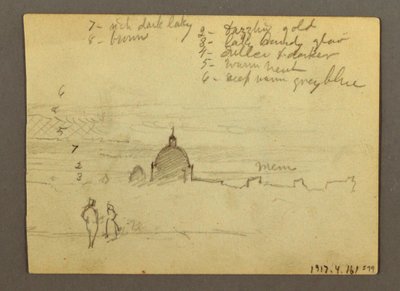 7 - rich dark laky
8 - brown
2 - dazzling gold
3 - laky bandy glow
4 - duller & darker
5 - warm neut
6 - deep warm grey blue
6
4
5
7
2
3
mem
1917.4.161